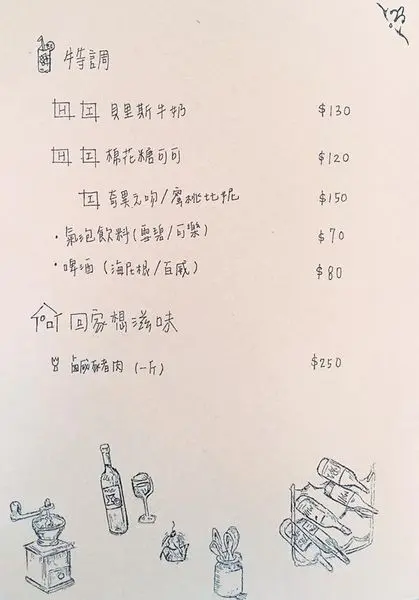 特調
H I 貝里斯牛奶 $130
H I 棉花糖可可 $120
I 奇異之吻/蜜桃比妮 $150
·氣泡飲料(雪碧/可樂) $70
·啤酒 (海尼根/百威) $80
回家想滋味
鹹豬肉 (一斤) $250